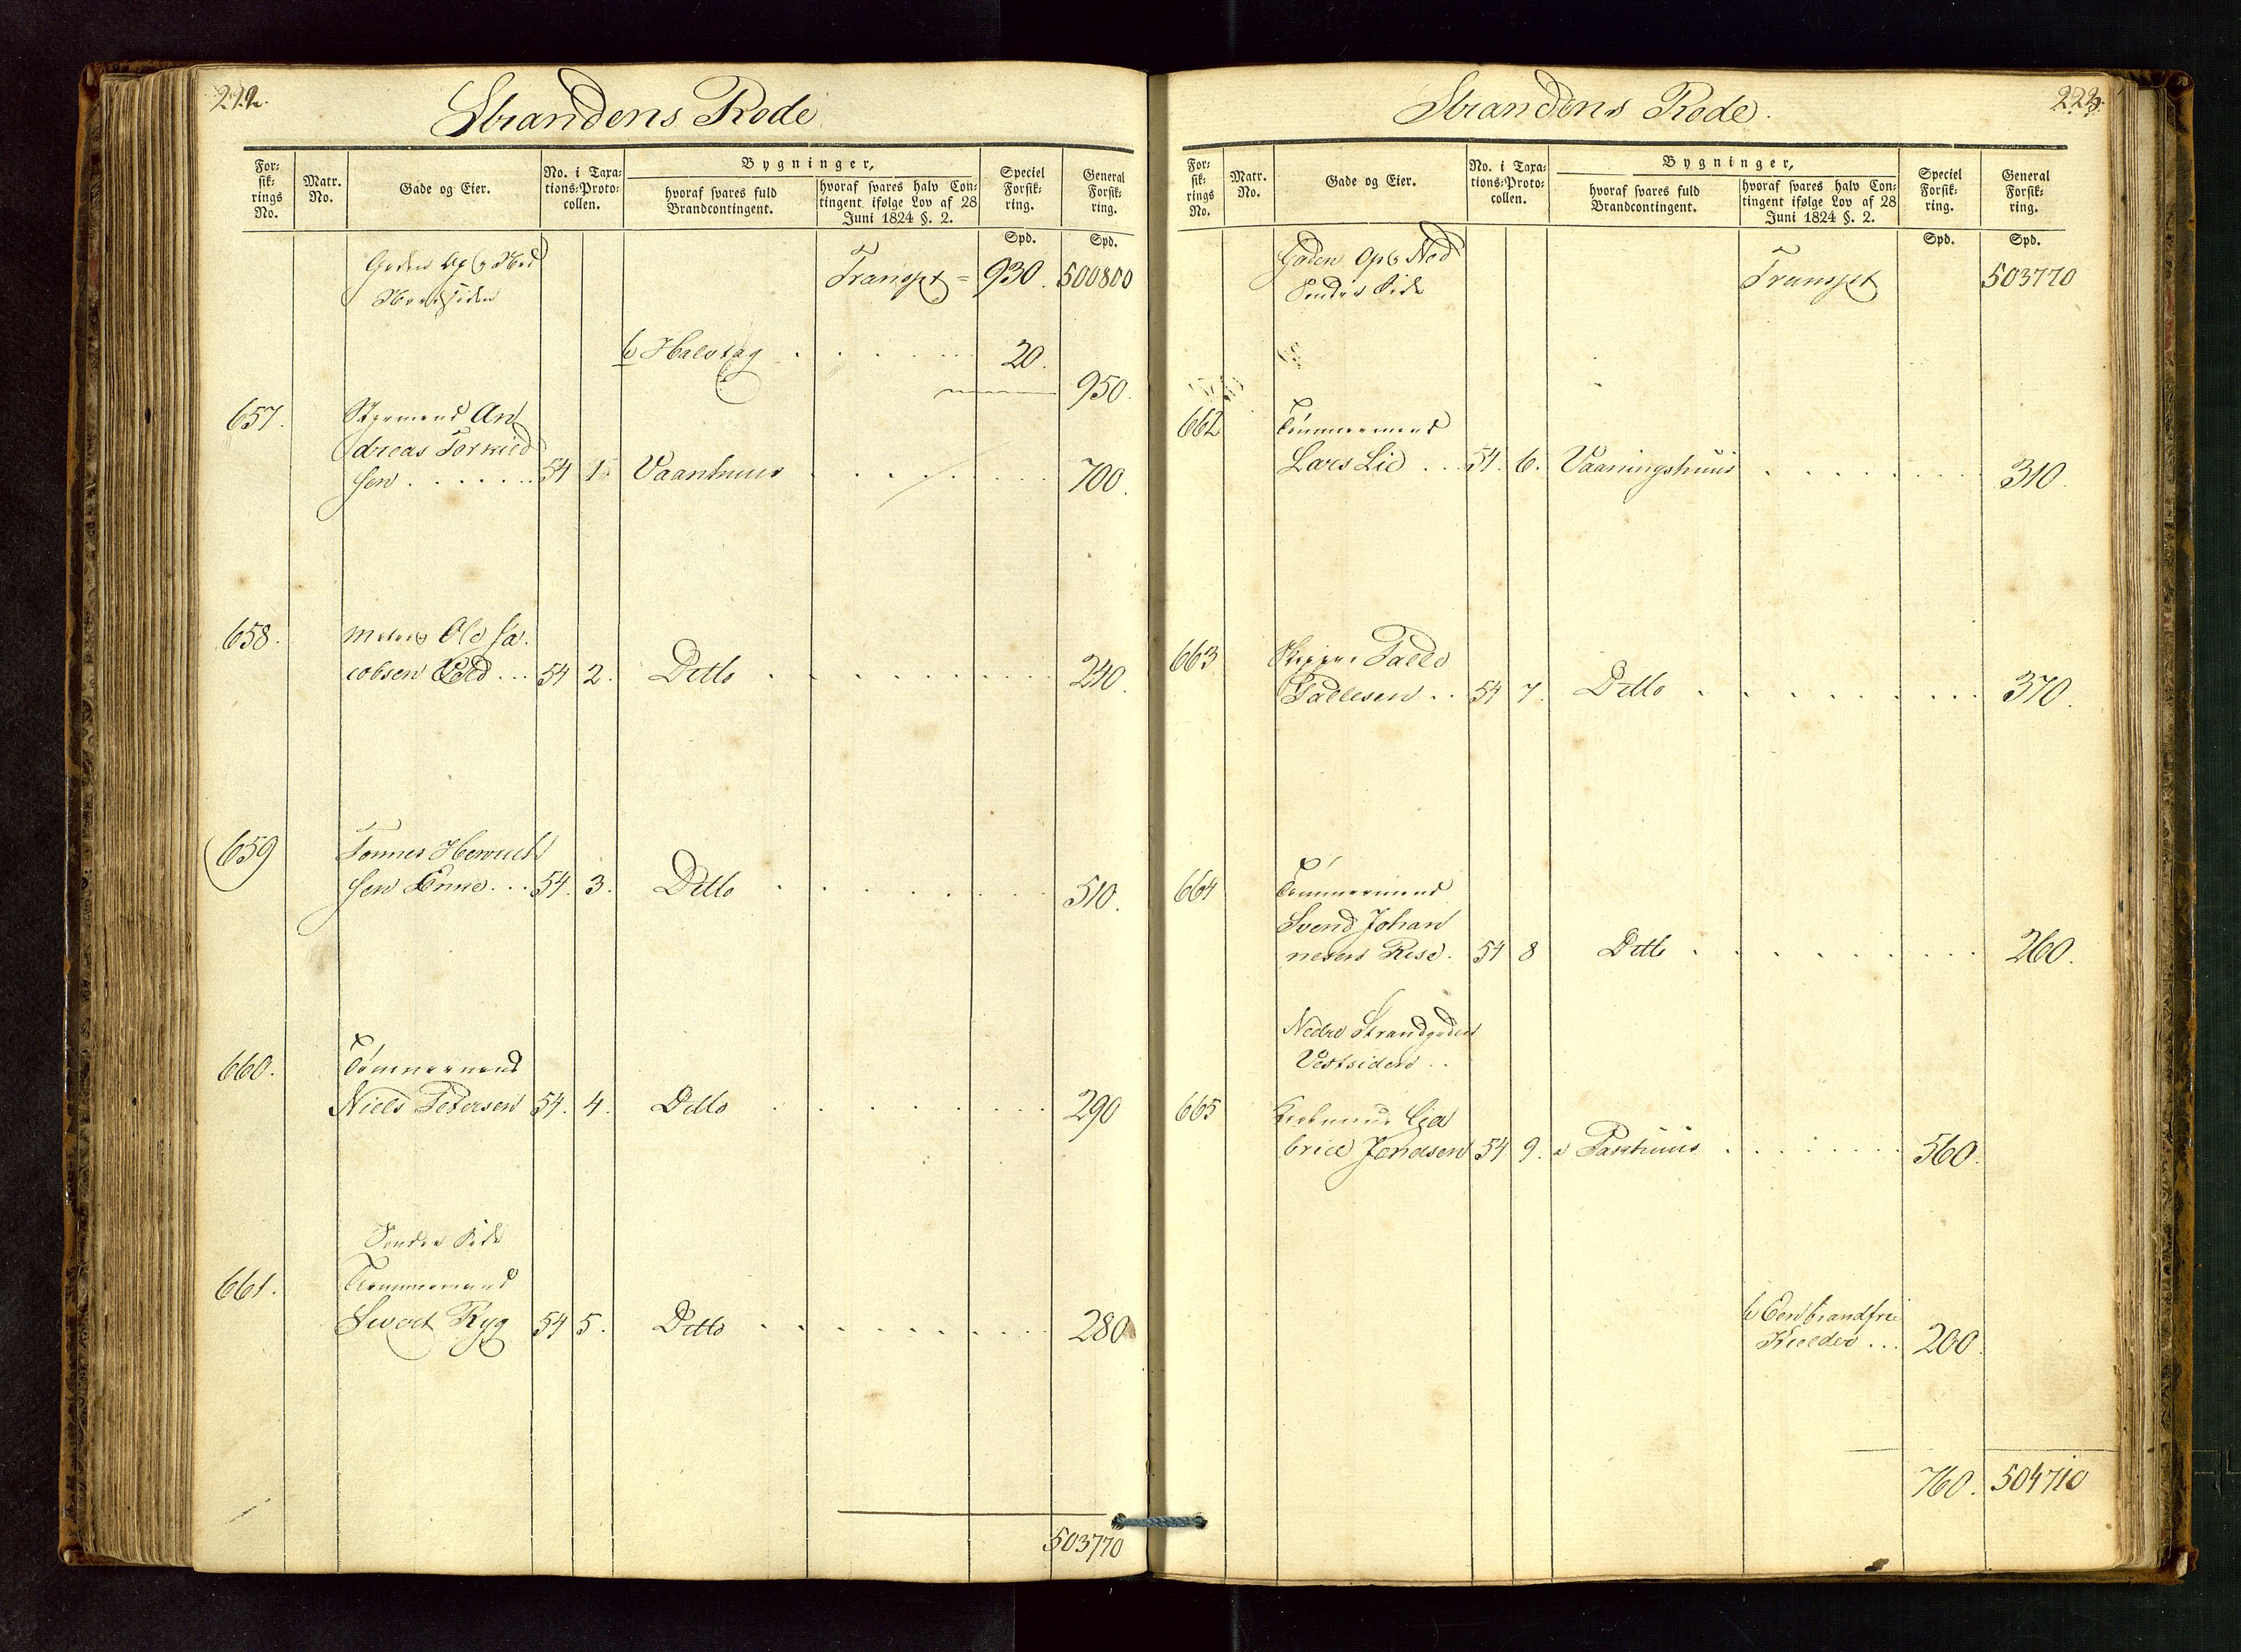 222.
Strandens Rode
For:
sik:
rings
No.
Matr.
No.
Gade og Eier.
No. i Taxa:
tions:Proto:
collen.
Bygninger,
hvoraf svares fuld
Brandcontingent.
hvoraf svares halv Con:
tingent ifølge Lov af 28
Juni 1824 §. 2.
Speciel
Forsik:
ring.
General
Forsik:
ring.
Spd.
Spd.
Gaden Op & Ned
Nordsiden
Transpt = 930. 500800
b Halvtag . . . . . . 20.
950.
657. Styrmand An
dreas Tormod
sen . . . . . . 54 1. Vaanhuus . . . . . . 700.
658. Ole Ja
cobsen . . . 54 2. Ditto . . . . . . 240.
659 Tønnes
sen . . . 54. 3. Ditto . . . . . . 510.
660. Tømmermand
Niels Petersen 54. 4. Ditto . . . . . . 290
Søndre Side
661. Tømmermand
Sivert Ryg 54 5. Ditto . . . . . . 280
503770
223.
Strandens Rode.
For:
sik:
rings
No.
Matr.
No.
Gade og Eier.
No. i Taxa:
tions:Proto:
collen.
Bygninger,
hvoraf svares fuld
Brandcontingent.
hvoraf svares halv Con:
tingent ifølge Lov af 28
Juni 1824 §. 2.
Speciel
Forsik:
ring.
General
Forsik:
ring.
Spd.
Spd.
Gaden Op & Ned
Søndre Side
Transpt 503770
662 Tømmermand
Lars Lie . . . 54. 6. Vaaningshuus . . . . . . 310.
663 Skipper Talle
Tallesen . . 54 7. Ditto . . . . . . 370.
664 Tømmermand
Svend Johan
nesen . 54 8 Ditto . . . . . . 260.
Nedre Strandgaden
Vestsiden . .
665 Kjøbmand Ga
briel Jonassen 54 9. a Pakhuus . . . . . . 560.
b Een brandfrie
Kielder . . . 200.
760. 504710